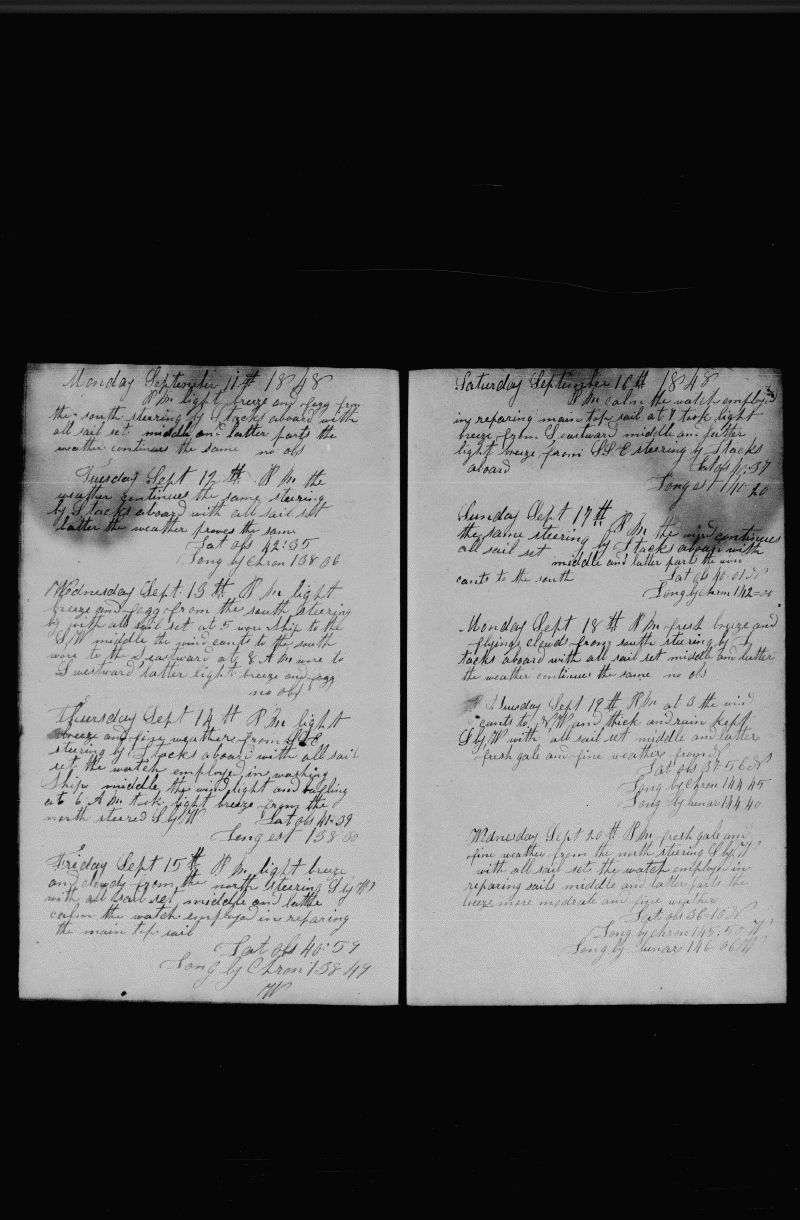 Monday September 11th 1848
P M light breze and fogg from
the south steering by S tacks aboard with
all sail set middle and latter parts the
weather continues the same no obs
Tuesday Sept 12th P M the
weather continues the same steering
by S tacks aboard with all sail set
latter the weather proves the same
Lat obs 42:35
Long by Chron 138 06
Wednesday Sept 13th P M light
breeze and fogg from the south steering
by with all sail set at 5 wore ship to the
S W middle the wind cants to the south
wore to the S eastward at 8 A M wore to
S westward latter light breeze and fogg
no obs
Thuersday Sept 14th P M light
breeze and fine weathers from
steering by S tacks aboard with all sail
set the watch employe in washing
Ship middle the wind light and
at 6 A M took light breeze from the
north steered S by W Lat obs 41:39
Long est 138
Friday Sept 15th P M light breze
and cloudy from the north steering S by W
with all sail set middle and lattle
calm the watch employd in reparing
the main top sail
Lat obs 40:59
Long by Chron 138 49
W
Saturday September 16th 1848
P M calm the watch employd
ing reparing main top sail at 7 took light
breeze from S eastward middle and latter
light breze from S S E steering by S tacks
aboard Lat obs :57
Long est 140 20
Sunday Sept 17th P M the wind continues
the same steering by S tacks aboard with
all sail set middle and latter parts the win
cants to the south Lat ob 40-01 N
Long by chron 142=00
Monday Sept 18th P M fresh breeze and
flying clouds from south steering by S
tacks aboard with all sail set middle and latter
the weather continues the same no obs
Tuesday Sept 19th P M at 3 the wind
cants to N W and thick and rain kept
S by W with all sail set middle and latter
fresh gale and fine weathers from N
Lat obs 37-56 N
Long by Chron 144 45
Long by lunar 144 40
Wednesday Sept 20th P M fresh gale and
fine weather from the north steering S by W
with all sail set the watch employd in
reparing sails middle and latter parts the
breeze more moderate and fine wether
Lat obs 36-10 N
Long by chron 145:50 W
Long by lunar 146 06 W